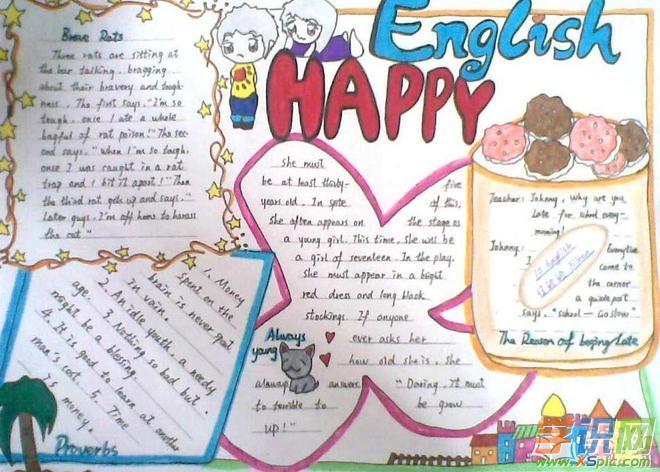 English
HAPPY
Brave Rats
Three rats are sitting at
the bar talking, bragging
about their bravery and tough-
ness. The first says, "I'm so
tough, once I ate a whole
bagful of rat poison!" The sec-
ond says, "when I'm so tough,
once I was caught in a rat
trap and I bit it apart!" Then
the third rat gets up and says,"
Later guys, I'm off home to harass
the cat"
1. Money
spent on the
brain is never
in vain
2. An idle youth, a needy
age. 3. Nothing so bad but
might be a blessing.
4. It is good to learn at another
man's cost. 5. Time
is money.
Proverbs
She must
be at least thirty- five
years old. In spite of this,
She often appears on the stage as
a young girl. This time, she will be
a girl of seventeen. In the play,
she must appear in a bright
red dress and long black
stockings. If anyone
Always
young
ever asks her
how old she is, she
always answers, "Daring, it must
to terrible to be grow
up!"
Teacher: Johnny, Why are you
late for school every
morning!
Johnny: Everytime
come to
the corner
a guidepost
says, "School — Go slow"
The Reason of being late
学识网
www.xSplc.com